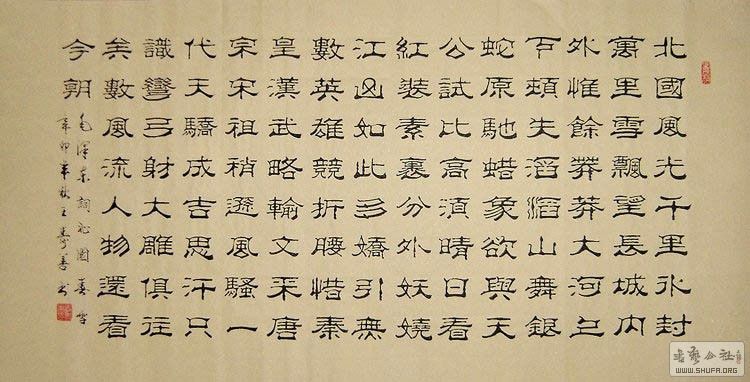 北國風光千里冰封
萬里雪飄望長城内
外惟餘莽莽大河上
下頓失滔滔山舞銀
蛇原馳蜡象欲與天
公試比高須晴日看
紅裝素裹分外妖嬈
江山如此多嬌引無
數英雄競折腰惜秦
皇漢武略輸文采唐
宗宋祖稍遜風騷一
代天驕成吉思汗只
識彎弓射大雕俱往
矣數風流人物還看
今朝
毛澤東詞沁園春雪
辛卯年秋王壽善书
WWW.SHUFA.ORG